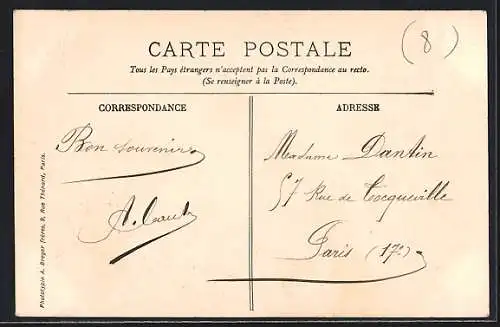 CARTE POSTALE
(8)
Tous les Pays étrangers n'acceptent pas la Correspondance au recto.
(Se renseigner à la Poste).
CORRESPONDANCE
Bon souvenir
A.
ADRESSE
Madame Dantin
57 Rue de Tocqueville
Paris (17e)
Phototypie A. Breger frères, 9, Rue Thénard, Paris.